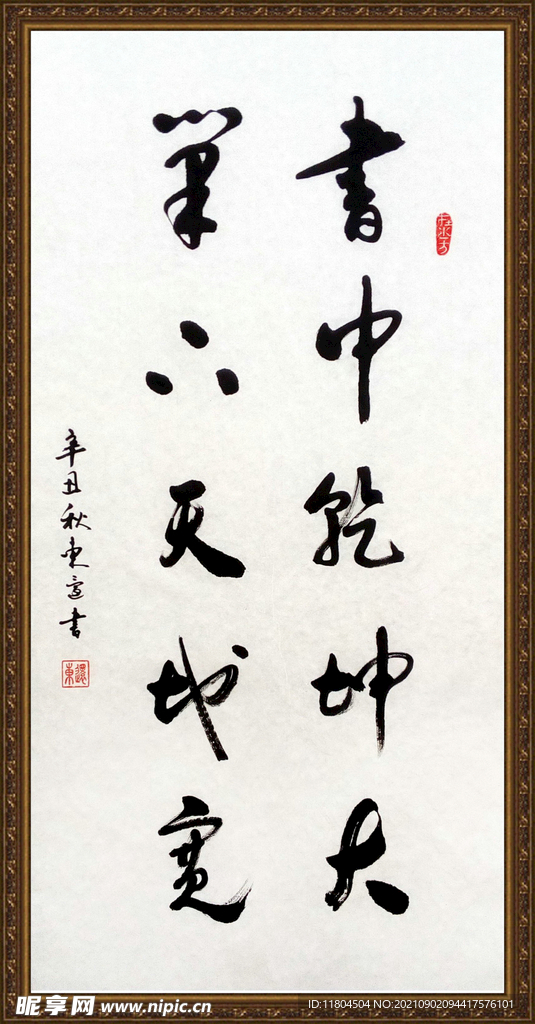 在水一方
書中乾坤大
筆下天地寬
辛丑秋東書
昵享网 www.nipic.cn
ID:11804504 NO:20210902094417576101